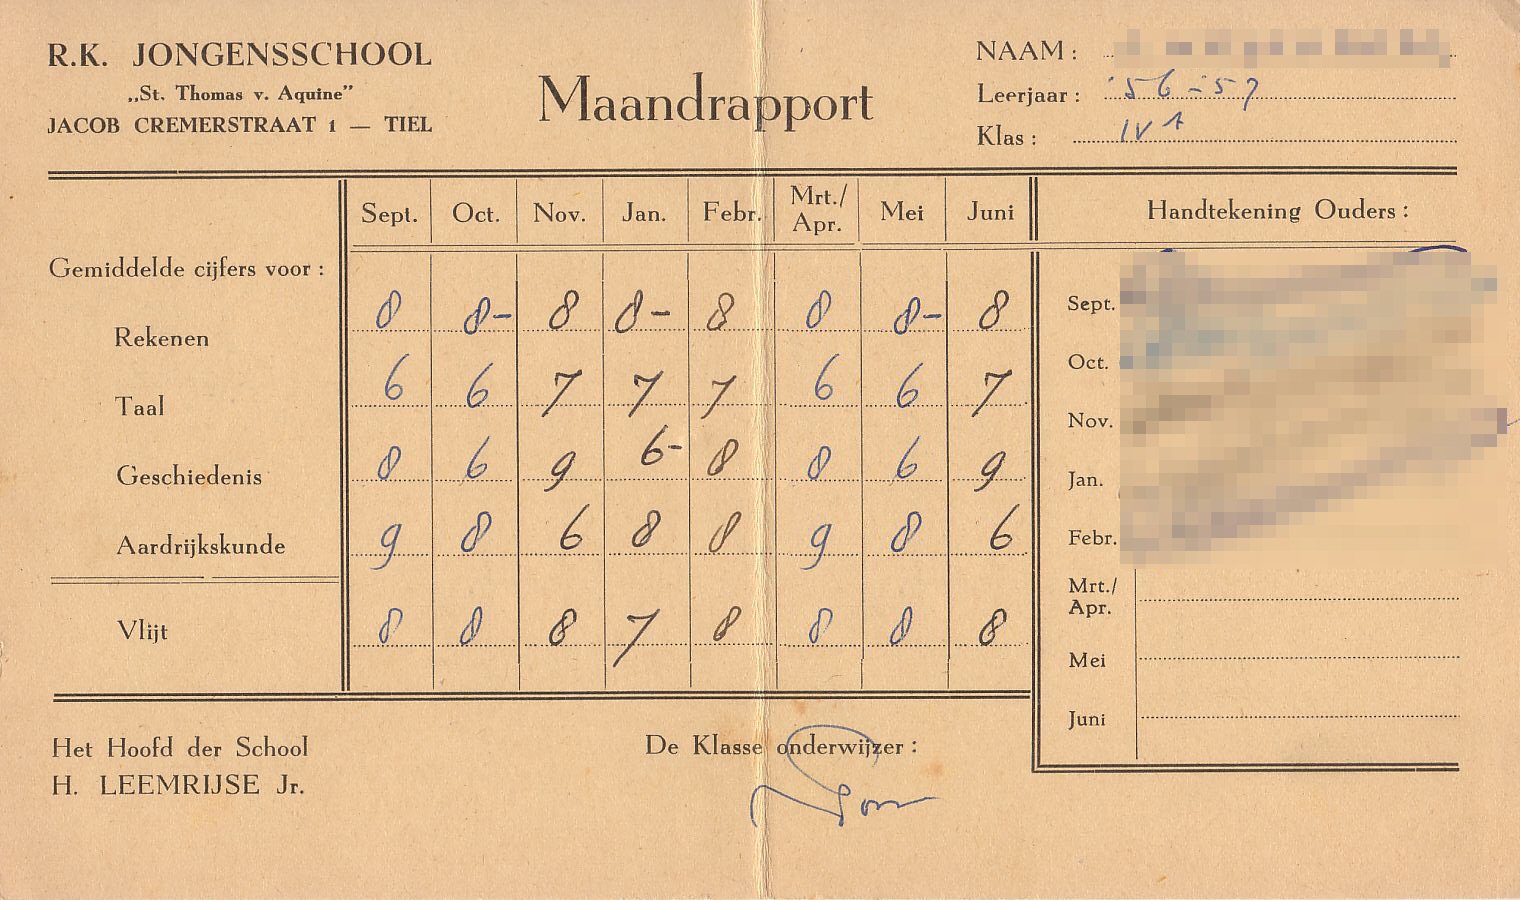 R.K. JONGENSSCHOOL
„St. Thomas v. Aquine”
JACOB CREMERSTRAAT 1 — TIEL
Maandrapport
NAAM :
Leerjaar : '56-57
Klas : IV A
Sept. Oct. Nov. Jan. Febr. Mrt./ Apr. Mei Juni
Handtekening Ouders :
Gemiddelde cijfers voor :
Rekenen 8 8- 8 8- 8 8 8- 8
Taal 6 6 7 7 7 6 6 7
Geschiedenis 8 6 9 6- 8 8 6 9
Aardrijkskunde 9 8 6 8 8 9 8 6
Vlijt 8 8 8 7 8 8 8 8
Sept.
Oct.
Nov.
Jan.
Febr.
Mrt./
Apr.
Mei
Juni
Het Hoofd der School
H. LEEMRIJSE Jr.
De Klasse onderwijzer :